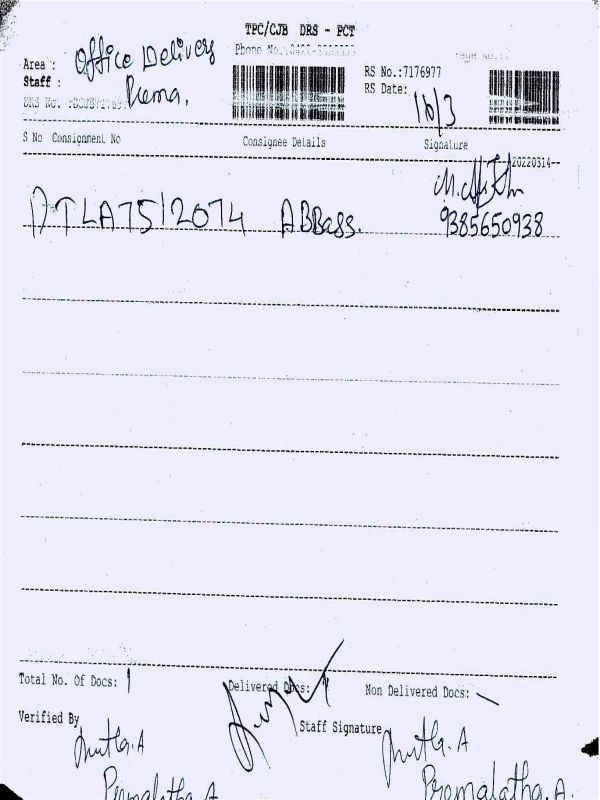 TPC/CJB DRS - PCT
Phone No.:0422-
Area : Office Delivery
Staff : Rema.
RS No.:7176977
RS Date: 16/3
S No Consignment No Consignee Details Signature
20220314--
DTLA7512074 ABBass.
9385650938
Total No. Of Docs: 1 Delivered Docs: 1 Non Delivered Docs: -
Verified By Staff Signature
Premalatha A Premalatha. A.